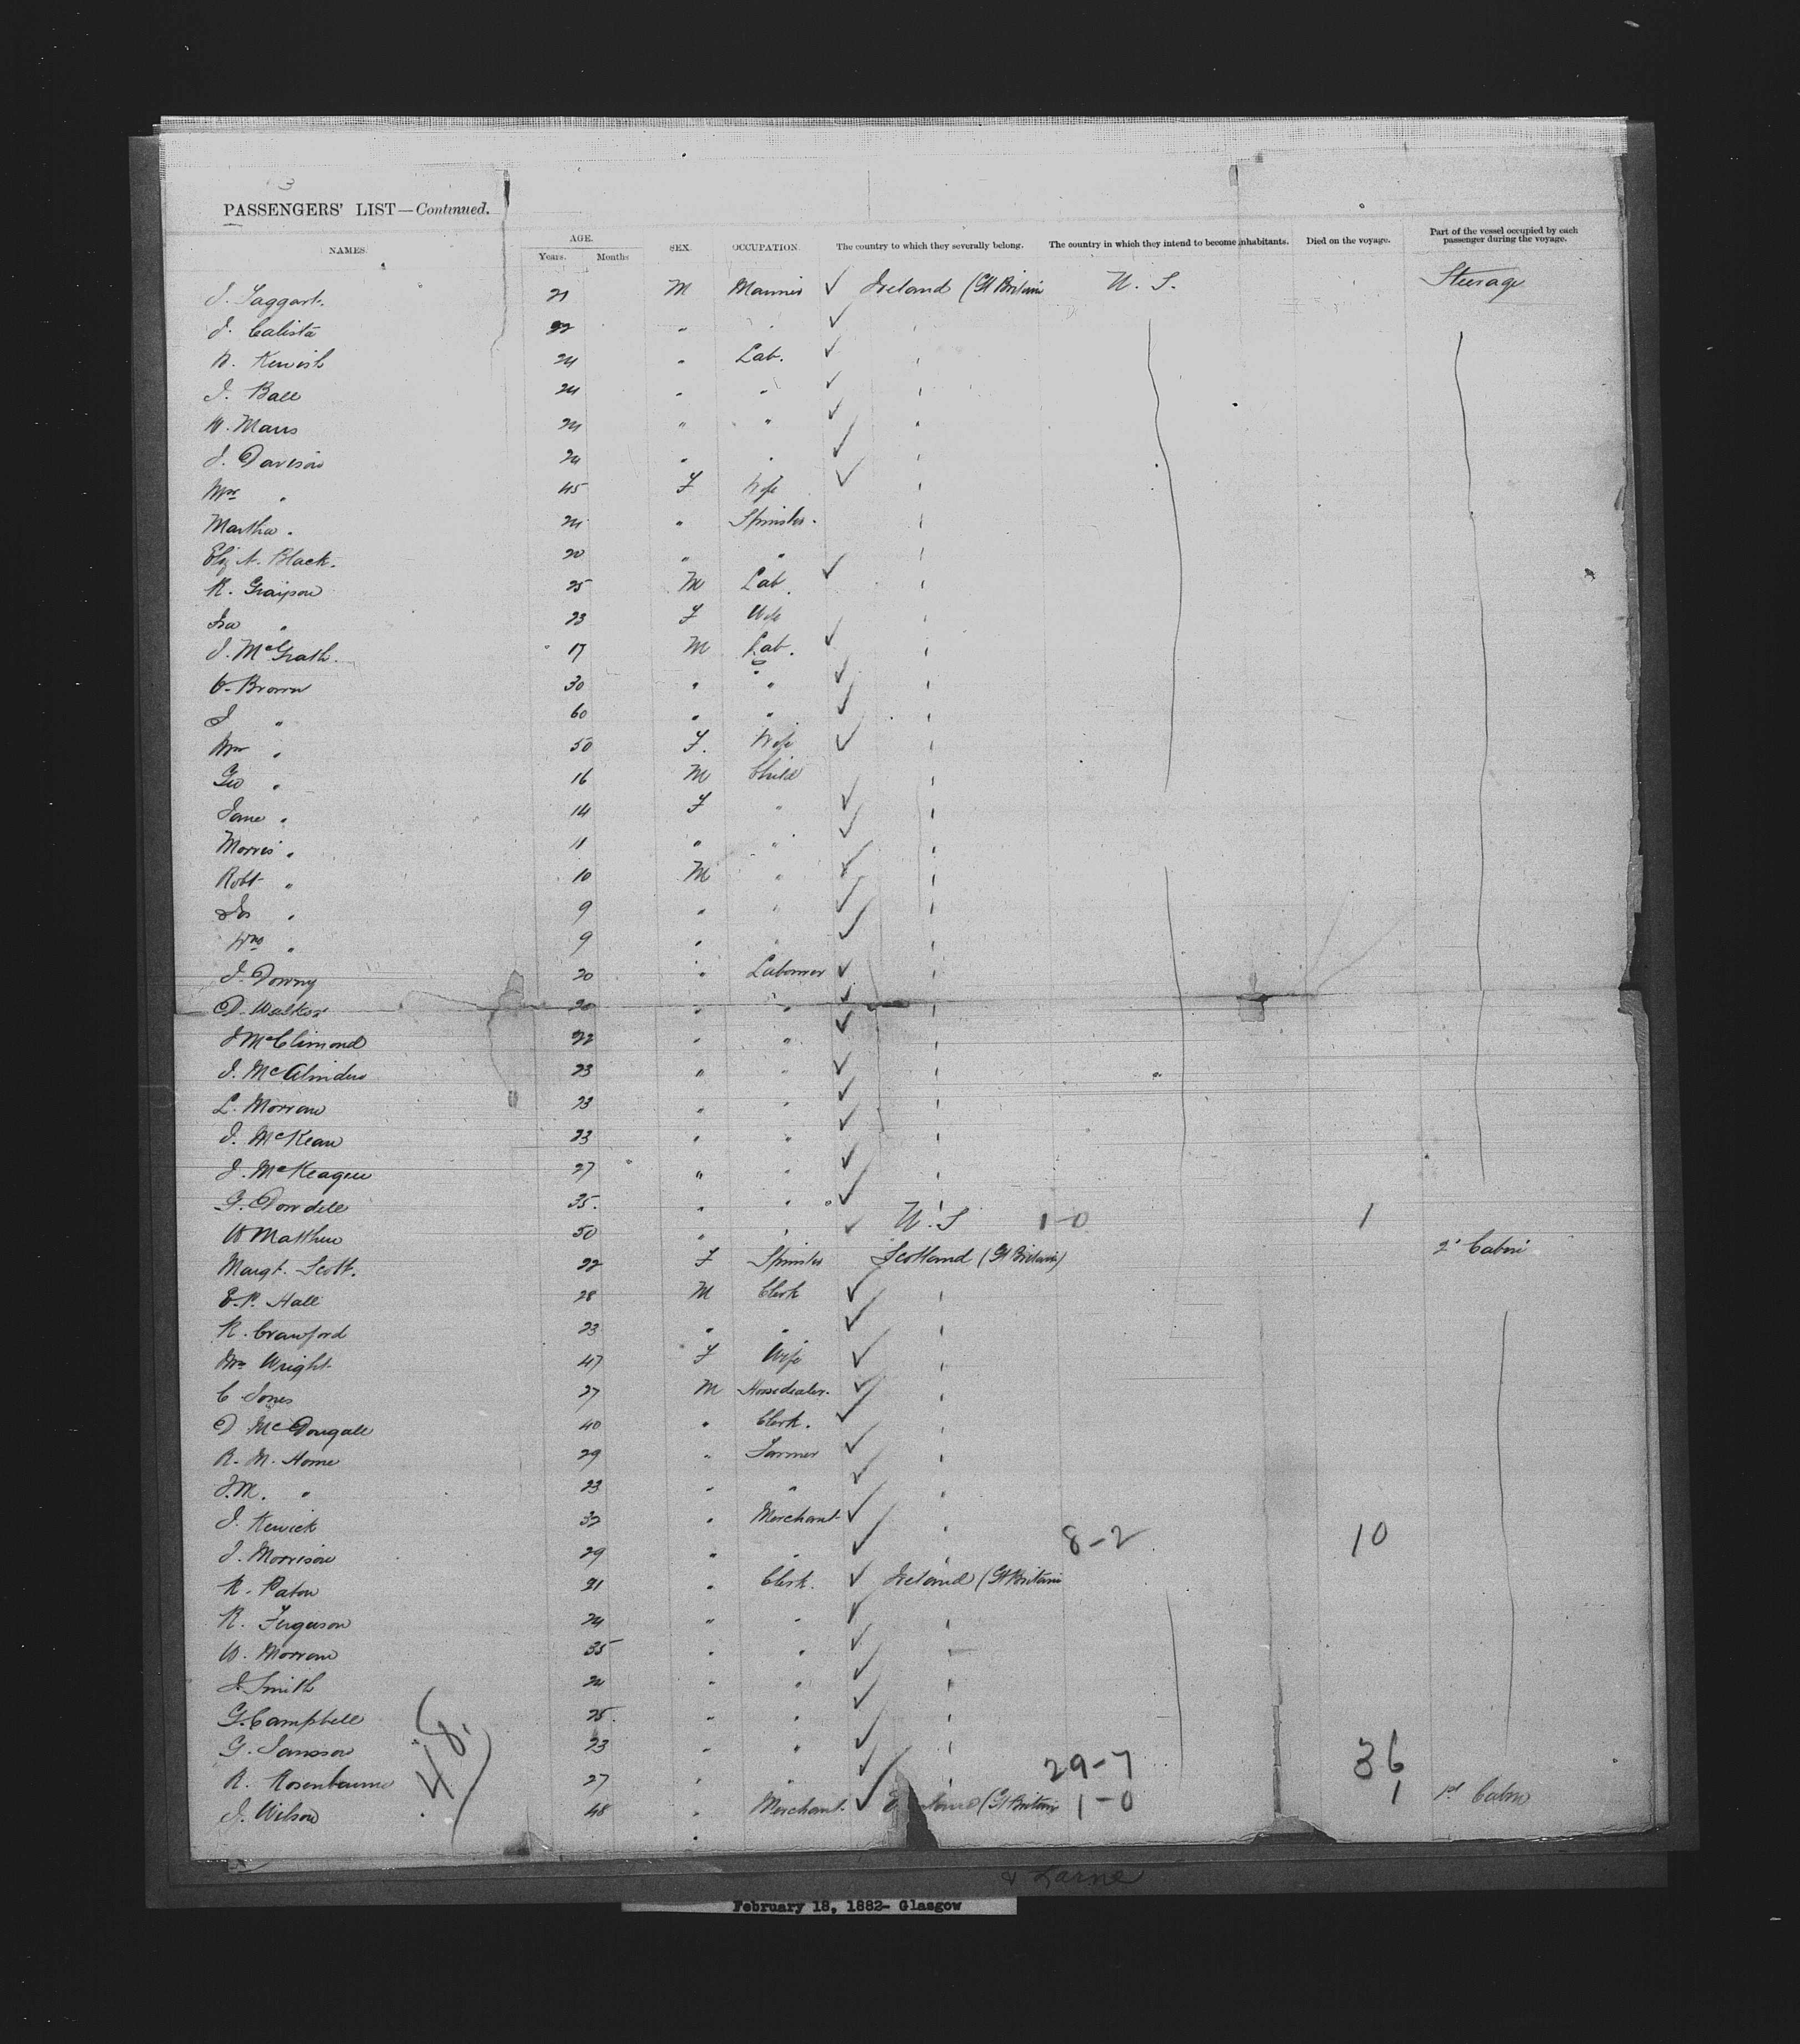 3
PASSENGERS' LIST—Continued.
NAMES. AGE. Years. Months SEX. OCCUPATION. The country to which they severally belong. The country in which they intend to become inhabitants. Died on the voyage. Part of the vessel occupied by each passenger during the voyage.
J. Taggart. 21 M ✓ Ireland (Gt Britain U. S. Steerage
J. Calista 22 " " ✓ "
Kewish 24 " Lab. ✓ "
J. Ball 24 " " ✓ "
W. Mars 24 " " ✓ "
J. Davison 24 " " ✓ "
Mrs " 45 F Wife ✓ "
Martha " 24 " Spinster. "
Eliz A. Black. 20 " " "
R. 25 M Lab. ✓ "
Isa " 23 F Wife "
J. McGrath. 17 M Lab. ✓ "
Brown 30 " " ✓ "
J " 60 " " ✓ "
Mrs " 50 F. Wife ✓ "
Geo " 16 M Child "
Jane " 14 F " ✓ "
Morris " 11 " " ✓ "
Robt " 10 M " ✓ "
" 9 " " ✓ "
Wm " 9 " " ✓ "
J. Downy 20 " Labourer ✓ "
D. Walker 20 " " ✓ "
J McClimond 22 " " ✓ "
J. McAlinden 23 " " ✓ "
L. Morrow 23 " " ✓ "
J. McKean 23 " " ✓ "
J. McKeague 27 " " ✓ "
G. Dowdell 35. " " ✓ "
W Matthew 50 " " ✓ U. S 1-0 1
Margt. Scott. 22 F Spinster Scotland (Gt Britain) 2d Cabin
E. P. Hall 28 M Clerk ✓ "
R. Crawford 23 " " ✓ "
Mrs Wright 47 F Wife ✓ "
C Jones 27 M Horsedealer. ✓ "
D McDougall 40 " Clerk. ✓ "
R. M. Home 29 " Farmer ✓ "
J. M. " 23 " " ✓ "
J. Kewick 32 " Merchant ✓ "
J. Morrison 29 " " ✓ " 8-2 10
R. Paton 21 " Clerk. ✓ Ireland (Gt Britain
R. Ferguson 24 " " ✓ "
W. Morrow 35 " " ✓ "
J. Smith " " ✓ "
G. Campbell 25. " " ✓ "
G. 23 " " ✓ "
R. Rosenbaum 27 " " ✓ " 29-7 36
J. Wilson 48 " Merchant. ✓ (Gt Britain 1-0 1 1st Cabin
48
& Larne
February 18, 1882- Glasgow